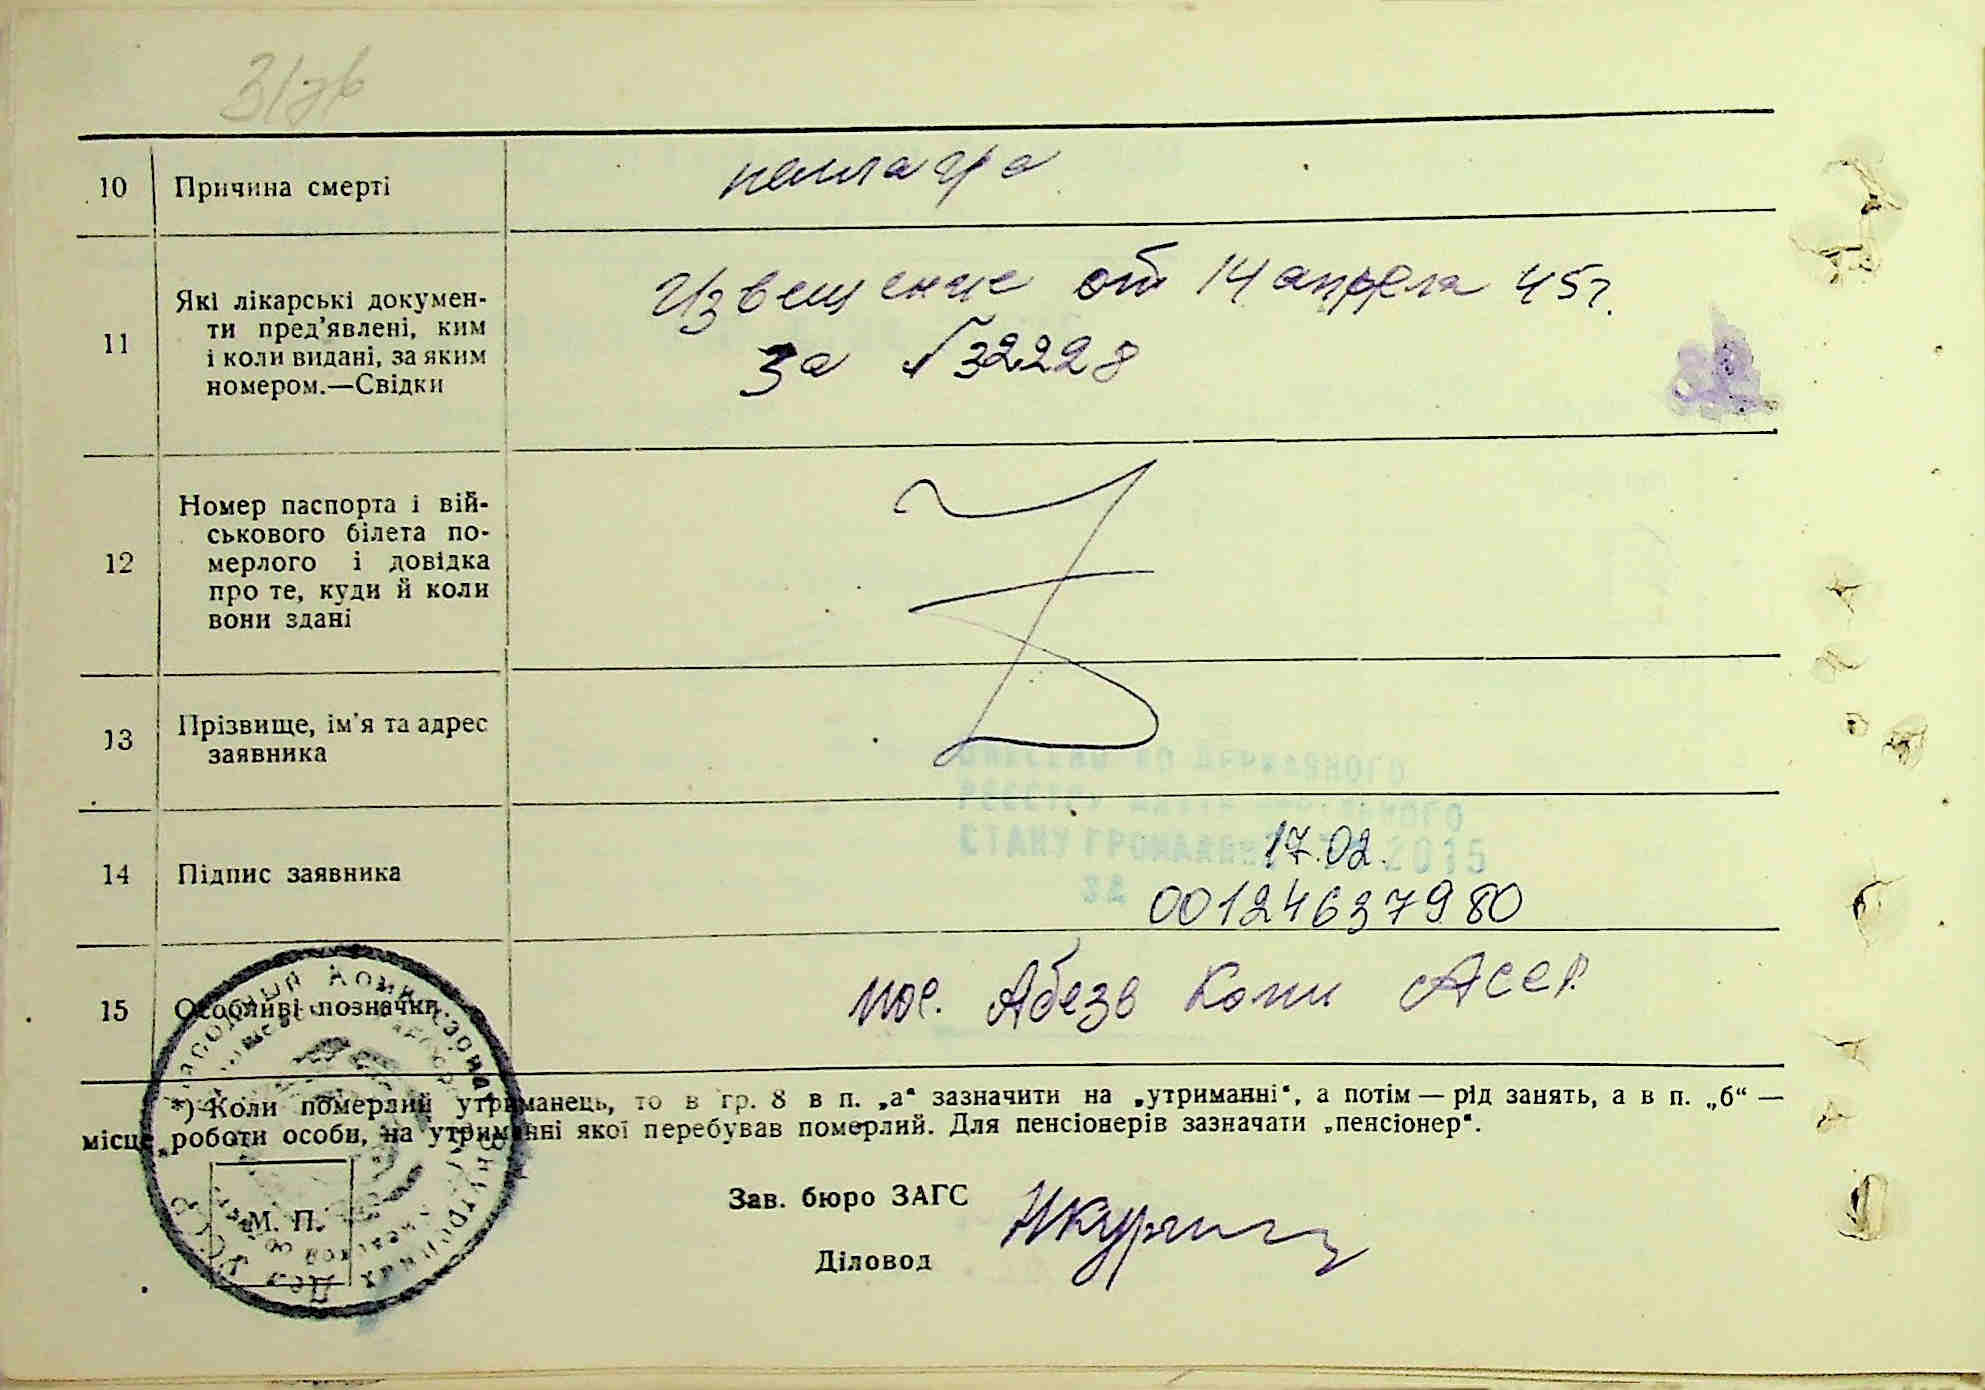 10 Причина смерті пеллагра
11 Які лікарські докумен-
ти пред'явлені, ким
і коли видані, за яким
номером.—Свідки
Извещение от 14 апреля 45 г.
за №32228
12 Номер паспорта і вій-
ськового білета по-
мерлого і довідка
про те, куди й коли
вони здані
13 Прізвище, ім'я та адрес
заявника
ВНЕСЕНО ДО ДЕРЖАВНОГО
РЕЄСТРУ АКТІВ ЦИВІЛЬНОГО
СТАНУ ГРОМАДЯН 17.02. 2015
14 Підпис заявника
ЗА 00124637980
15 Особливі позначки пос. Абезь Коми АССР
*) Коли померлий утриманець, то в гр. 8 в п. „а“ зазначити на „утриманні“, а потім — рід занять, а в п. „б“ —
місце роботи особи, на утриманні якої перебував померлий. Для пенсіонерів зазначати „пенсіонер“.
Зав. бюро ЗАГС
М. П.
Діловод
Народный Комиссариат Внутренних Дел УССР